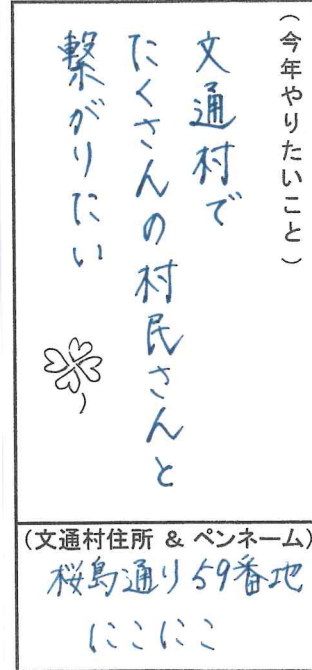 （今年やりたいこと）
文通村で
たくさんの村民さんと
繋がりたい
(文通村住所 & ペンネーム)
桜島通り59番地
にこにこ